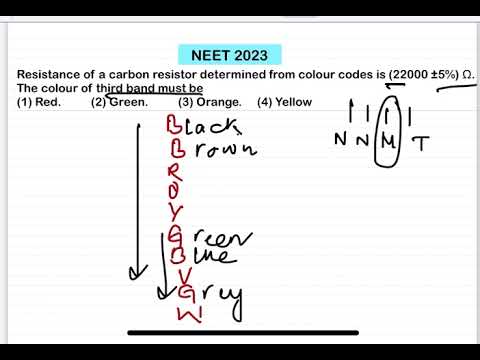 NEET 2023
Resistance of a carbon resistor determined from colour codes is (22000 ±5%) Ω.
The colour of third band must be
(1) Red. (2) Green. (3) Orange. (4) Yellow
Black
Brown
R
O
Y
Green
Blue
V
Grey
W
N N M T